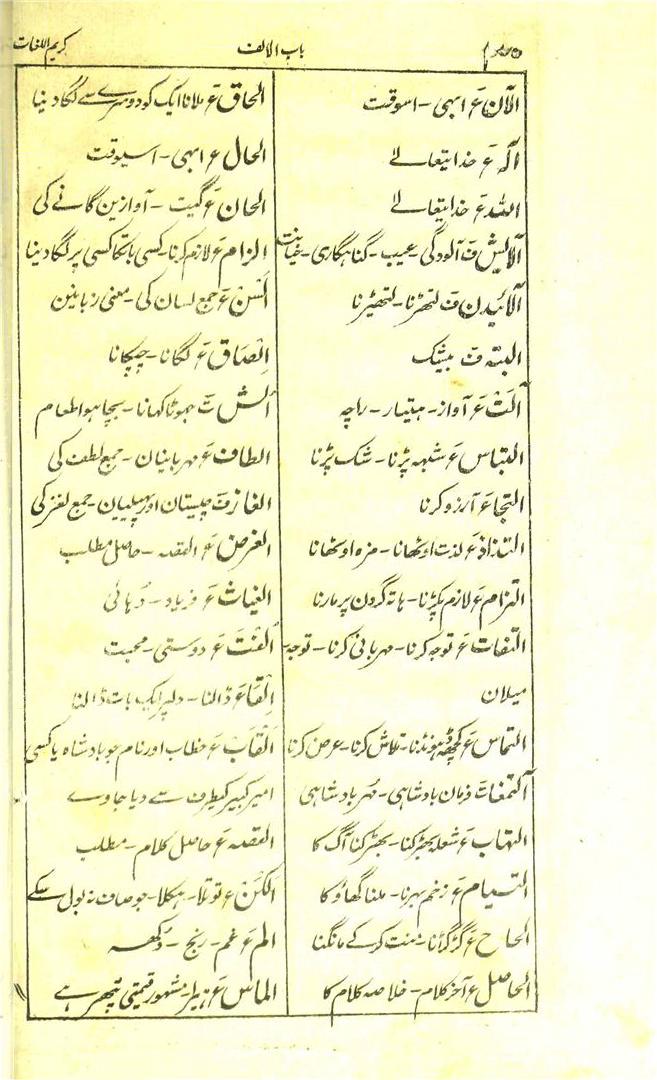 کریم اللغات
باب الالف
الآن ع ابہی - اسوقت
آلہ ع خدایتعالے
اللہ ع خدایتعالے
آلایش ف آلودگی - عیب - گناہگاری - خیانت
آلائیدن ف لتھڑنا - لتھیڑنا
البتہ ف بیشک
آلت ع آواز - ہتیار - راچہ
التباس ع شبہہ پڑنا - شک پڑنا
التجا ع آرزو کرنا
التذاذ ع لذت اوٹھانا - مزہ اوٹھانا
التزام ع لازم پکڑنا - ہاتہ گردن پر مارنا
التفات ع توجہ کرنا - مہربانی کرنا - توجہ
میلان
التماس ع کچھ ڈہونڈنا - تلاش کرنا - عرض کرنا
آلتمغا ت فرمان بادشاہی - مہر بادشاہی
التہاب ع شعلہ بھڑکنا - بھڑکنا آگ کا
التیام ع زخم بہرنا - ملنا گھاؤ کا
الحاح ع گڑگڑانا - منت کرکے مانگنا
الحاصل ع آخر کلام - خلاصہ کلام کا
الحاق ع ملانا ایک کو دوسرے سے لگا دینا
الحال ع ابہی - اسیوقت
الحان ع گیت - آوازین گانے کی
الزام ع لازم کرنا - کسی بات کا کسی پر لگا دینا
السن ع جمع لسان کی - معنی زبانین
الصاق ع لگانا - چپکانا
الش ت جہوٹا کہانا - بچا ہوا طعام
الطاف ع مہربانیان - جمع لطف کی
الغاز ت چیستان اور پہیلیان - جمع لغز کی
الغرض ع القصہ - حاصل مطلب
الغیاث ع فریاد - دُہائی
الفت ع دوستی - محبت
القا ع ڈالنا - دلپر ایک بات ڈالنا
القاب ع خطاب اور نام جو بادشاہ یا کسی
امیر کبیر کیطرف سے دیا جاوے
القصہ ع حاصل کلام - مطلب
الکن ع توتلا - ہکلا - جو صاف نہ بول سکے
الم ع غم - رنج - دُکھہ
الماس ع ہیرا - مشہور قیمتی پتھر ہے